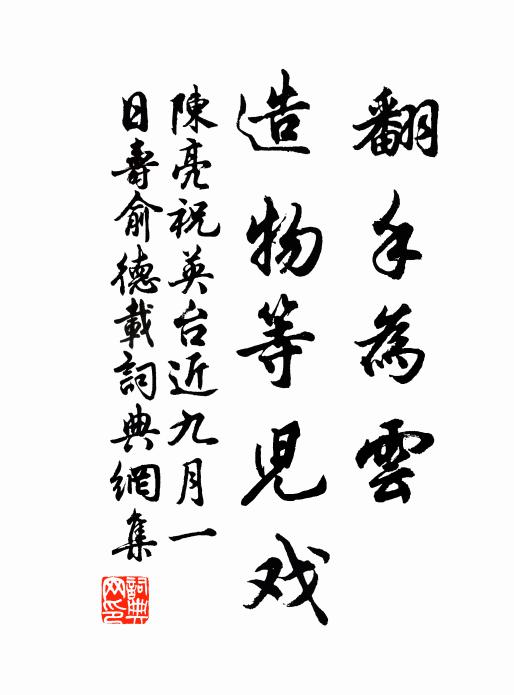 翻手為雲
造物等児戏
陳亮祝英台近九月一
日壽俞德載詞典網集
詞典
网印